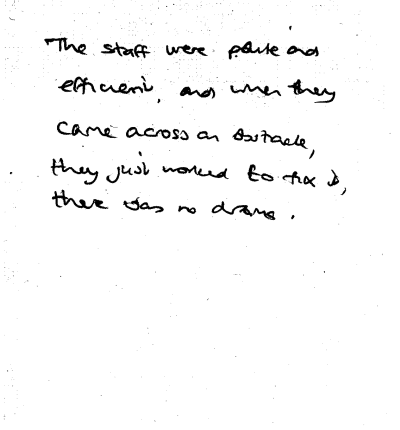 The staff were polite and
efficient, and when they
came across an obstacle,
they just worked to fix it,
there was no drama.